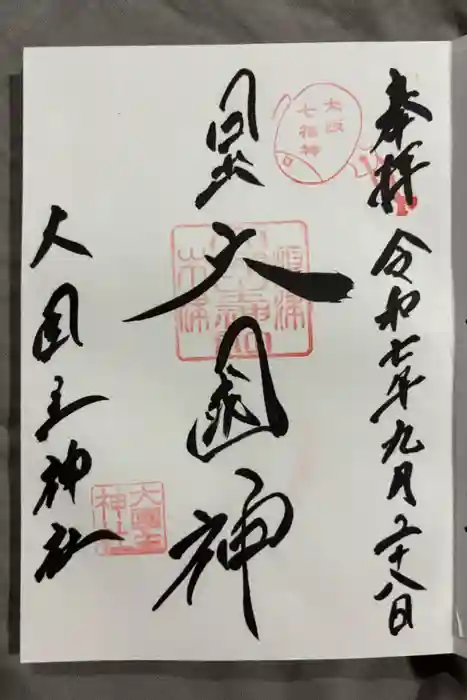 奉拝 令和七年九月二十八日
大阪
七福神
日出大国神
大国主神社
大國主
神社